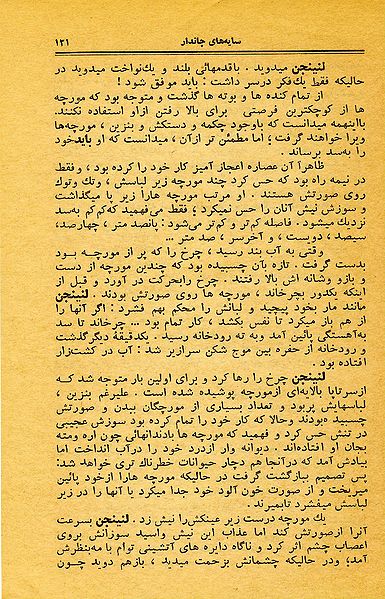 سایه‌های جاندار ۱۲۱
لنینجن میدوید . باقدمهائی بلند و یك‌نواخت میدوید در
حالیکه فقط یك‌فکر درسر داشت : باید موفق شود !
از تمام کنده ها و بوته ها گذشت و متوجه بود که مورچه
ها از کوچکترین فرصتی برای بالا رفتن ازاو استفاده نکنند.
بااینهمه میدانست که باوجود چکمه و دستکش و بنزین ، مورچه‌ها
ویرا خواهند گرفت ؛ اما مطمئن تر ازآن ، میدانست که او بایدخود
را به‌سد برساند .
ظاهراً آن عصاره اعجاز آمیز کار خود را کرده بود ، وفقط
در نیمه راه بود که حس کرد چند مورچه زیر لباسش ، وتك وتوك
روی صورتش هستند . او مرتب مورچه هارا زیر پا میگذاشت
و سوزش نیش آنان را حس نمیکرد ؛ فقط می‌فهمید که‌کم‌کم به‌سد
نزدیك میشود . فاصله کم‌تر و کم‌تر می‌شود : پانصد متر ، چهارصد،
سیصد ، دویست ، و آخرسر ، صد متر ...
وقتی به آب بند رسید ، چرخ را که پر از مورچه بود
بدست گرفت . تازه بآن چسبیده بود که چندین مورچه از دست
و بازو وشانه اش بالا رفتند . چرخ رابحرکت در آورد و قبل از
اینکه یکدور بچرخاند ، مورچه ها روی صورتش بودند . لنینجن
مانند مار بخود پیچید و لبانش را محکم بهم فشرد : اگر آنها را
از هم باز میکرد تا نفس بکشد ، کار تمام بود ... چرخاند تا سد
به‌آهستگی پائین آمد وبه ته رودخانه رسید . یکدقیقه دیگرگذشت
و رودخانه از حفره بین موج شکن سرازیر شد : آب در کشت‌زار
افتاده بود .
لنینجن چرخ را رها کرد و برای اولین بار متوجه شد که
ازسرتاپا بالایه‌ای ازمورچه پوشیده شده است . علیرغم بنزین ،
لباسهایش پربود و تعداد بسیاری از مورچگان ببدن و صورتش
چسبیده بودند وحالا که کار خود را تمام کرده بود سوزش عجیبی
در تنش حس کرد و فهمید که مورچه ها بادندانهائی چون اره ومته
بجان او افتاده‌اند . دیوانه وار ازدرد خود را درآب انداخت اما
بیادش آمد که درآنجا هم دچار حیوانات خطرناك تری خواهد شد:
پس تصمیم ببازگشت گرفت در حالیکه مورچه هارا ازخود پائین
میریخت و از صورت خون آلود خود جدا میکرد یا آنها را در زیر
لباسش میفشرد تابمیرند .
یك مورچه درست زیر عینکش‌را نیش زد . لنینجن بسرعت
آنرا ازصورتش کند اما عذاب این نیش واسید سوزانش بروی
اعصاب چشم اثر کرد و ناگاه دایره های آتشینی توام با مه‌بنظرش
آمد؛ ودر حالیکه چشمانش بزحمت میدید ، بازهم دوید چــون